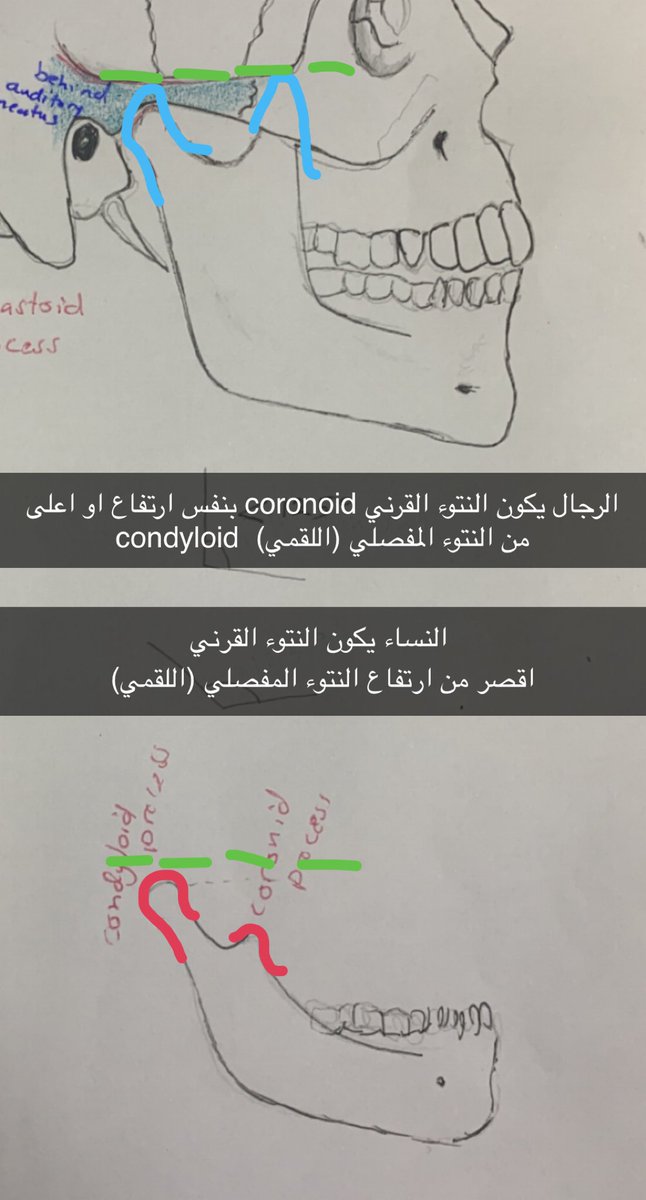 behind
auditory
meatus
astoid
cess
الرجال يكون النتوء القرني coronoid بنفس ارتفاع او اعلى
من النتوء المفصلي (اللقمي) condyloid
النساء يكون النتوء القرني
اقصر من ارتفاع النتوء المفصلي (اللقمي)
condyloid
process